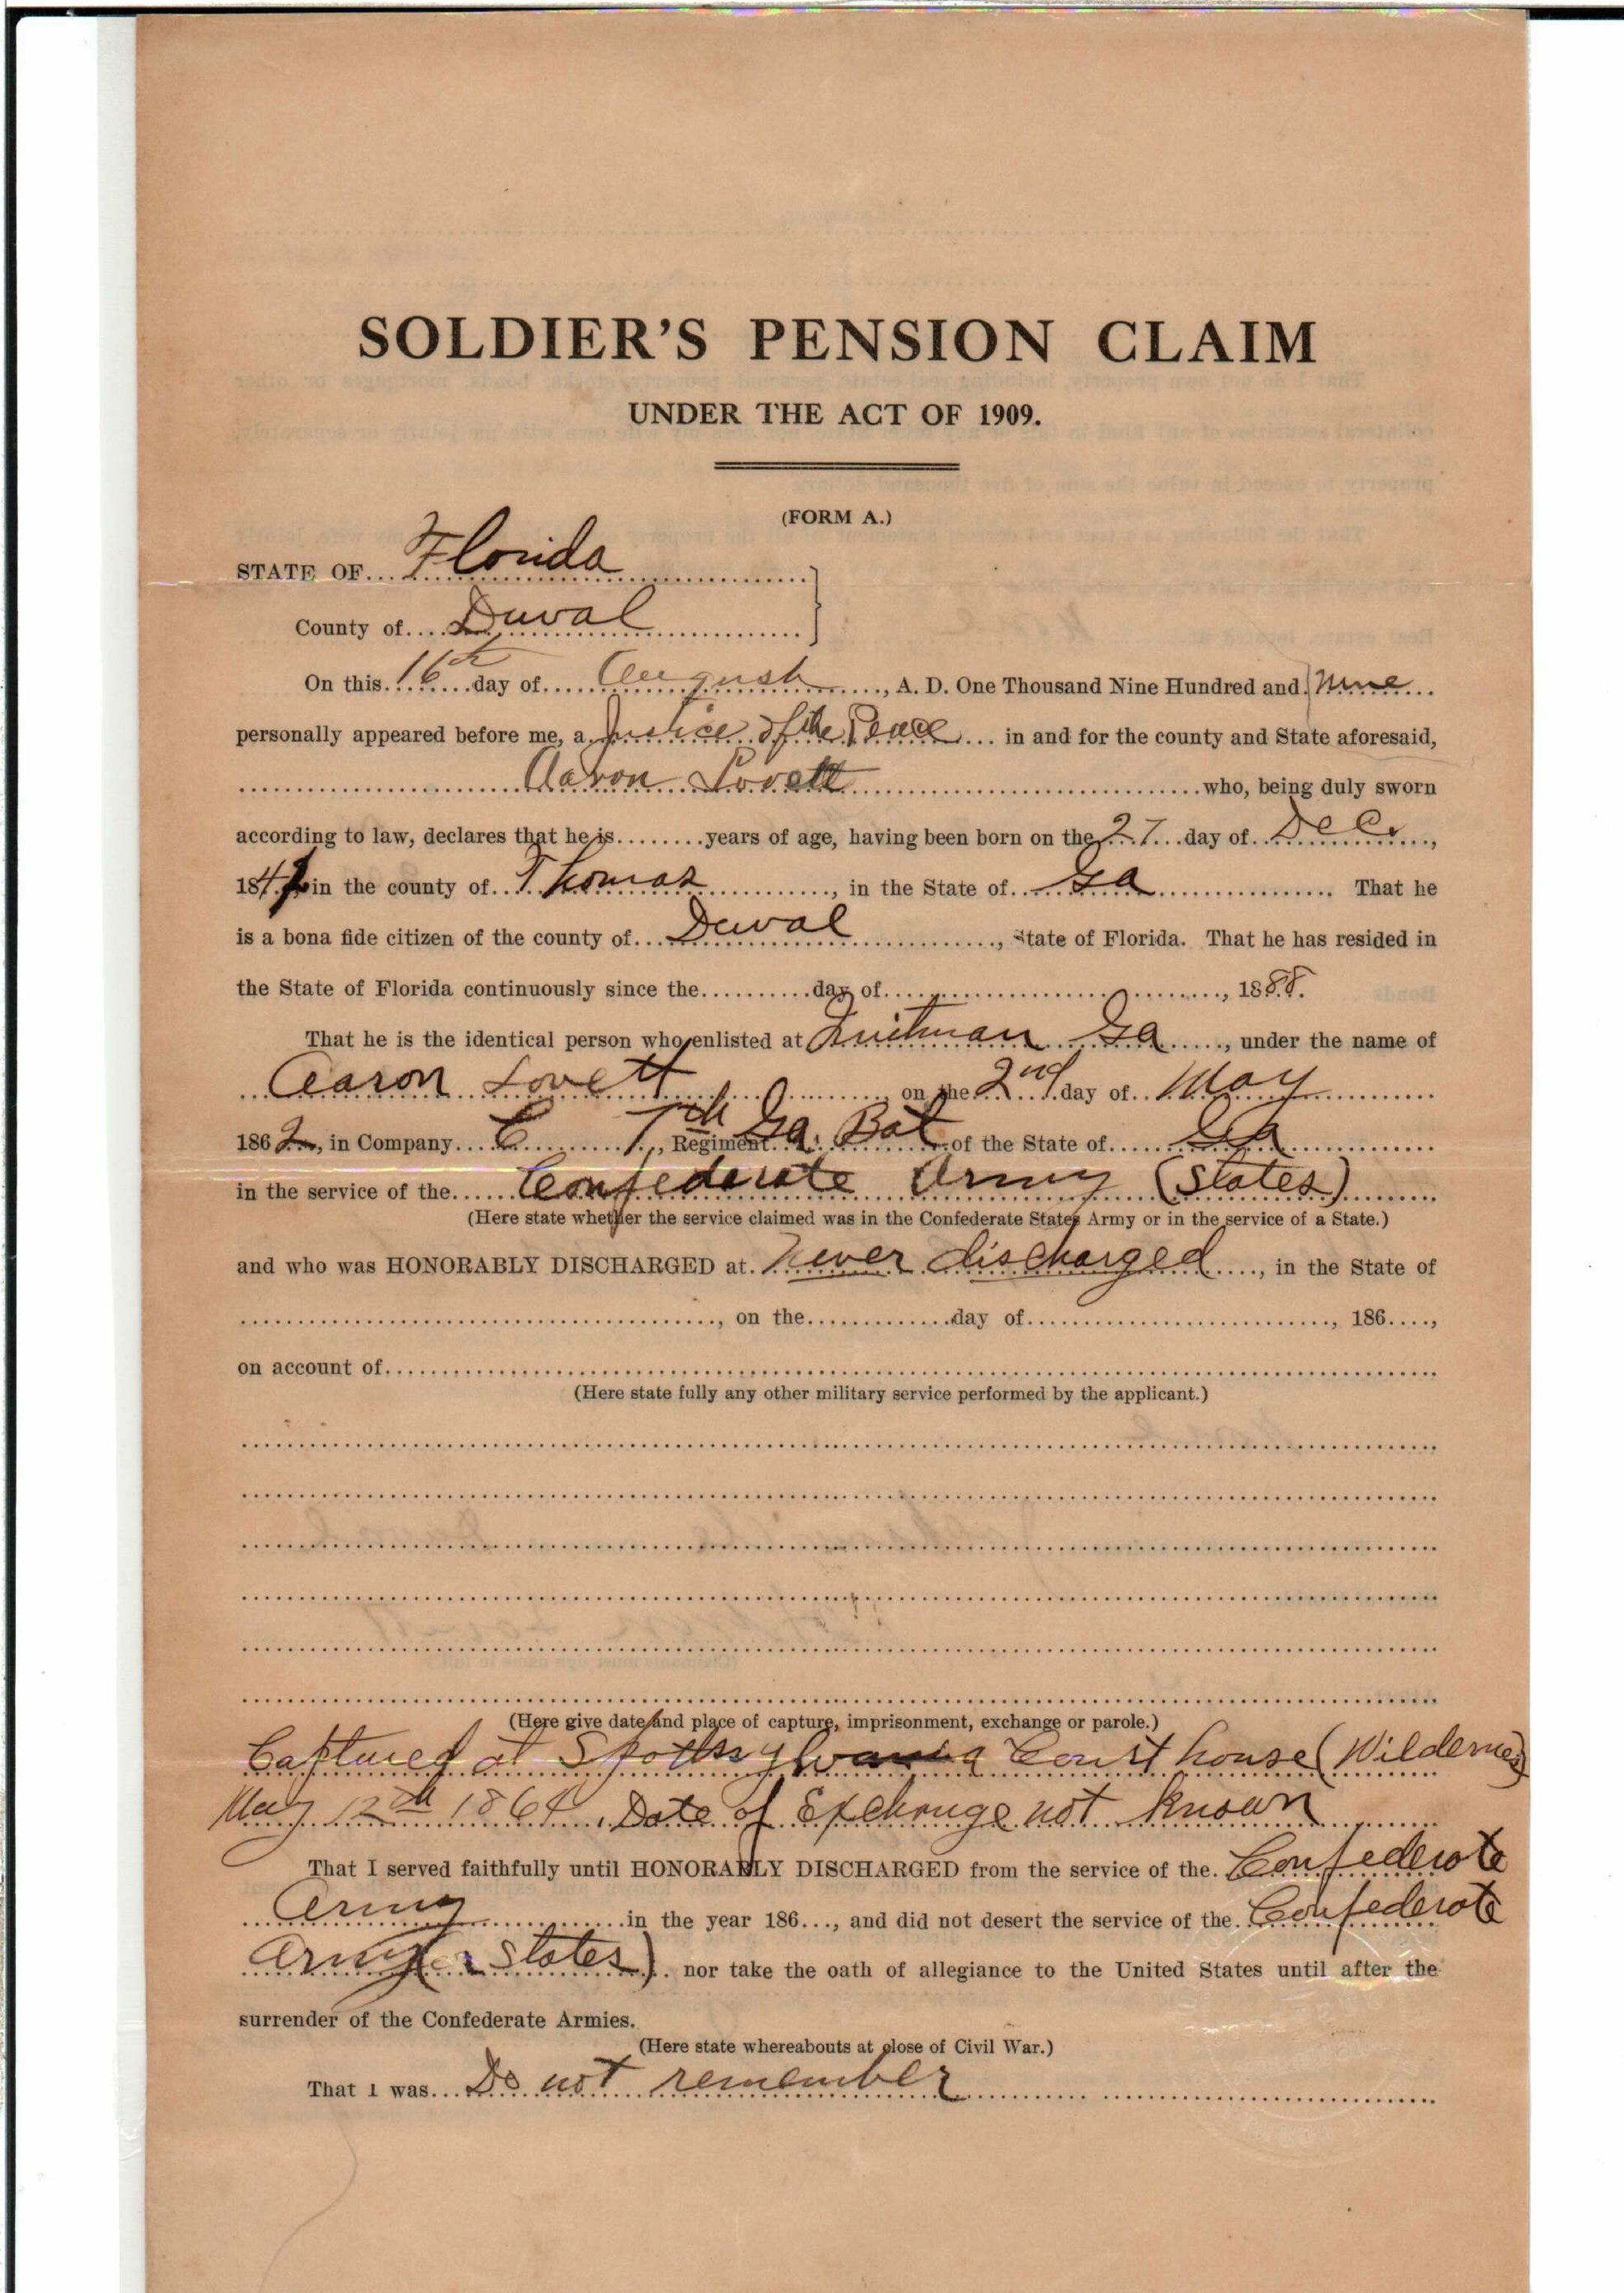 SOLDIER'S PENSION CLAIM
UNDER THE ACT OF 1909.
(FORM A.)
STATE OF Florida
County of Duval
On this 16th day of August, A. D. One Thousand Nine Hundred and nine
personally appeared before me, a Justice of the Peace in and for the county and State aforesaid,
Aaron Lovett who, being duly sworn
according to law, declares that he is years of age, having been born on the 27 day of Dec.,
184 in the county of Thomas, in the State of Ga. That he
is a bona fide citizen of the county of Duval, State of Florida. That he has resided in
the State of Florida continuously since the day of, 1888.
That he is the identical person who enlisted at Quitman Ga, under the name of
Aaron Lovett on the 2nd day of May
1862, in Company C 7th, Regiment Ga. Bat of the State of Ga
in the service of the Confederate Army (States)
(Here state whether the service claimed was in the Confederate States Army or in the service of a State.)
and who was HONORABLY DISCHARGED at Never discharged, in the State of
, on the day of, 186,
on account of
(Here state fully any other military service performed by the applicant.)
(Here give date and place of capture, imprisonment, exchange or parole.)
Captured at Court house (Wilderness)
May 12th 1864. Date of Exchange not known
That I served faithfully until HONORABLY DISCHARGED from the service of the Confederate
Army in the year 186, and did not desert the service of the Confederate
Army (or States) nor take the oath of allegiance to the United States until after the
surrender of the Confederate Armies.
(Here state whereabouts at close of Civil War.)
That I was Do not remember